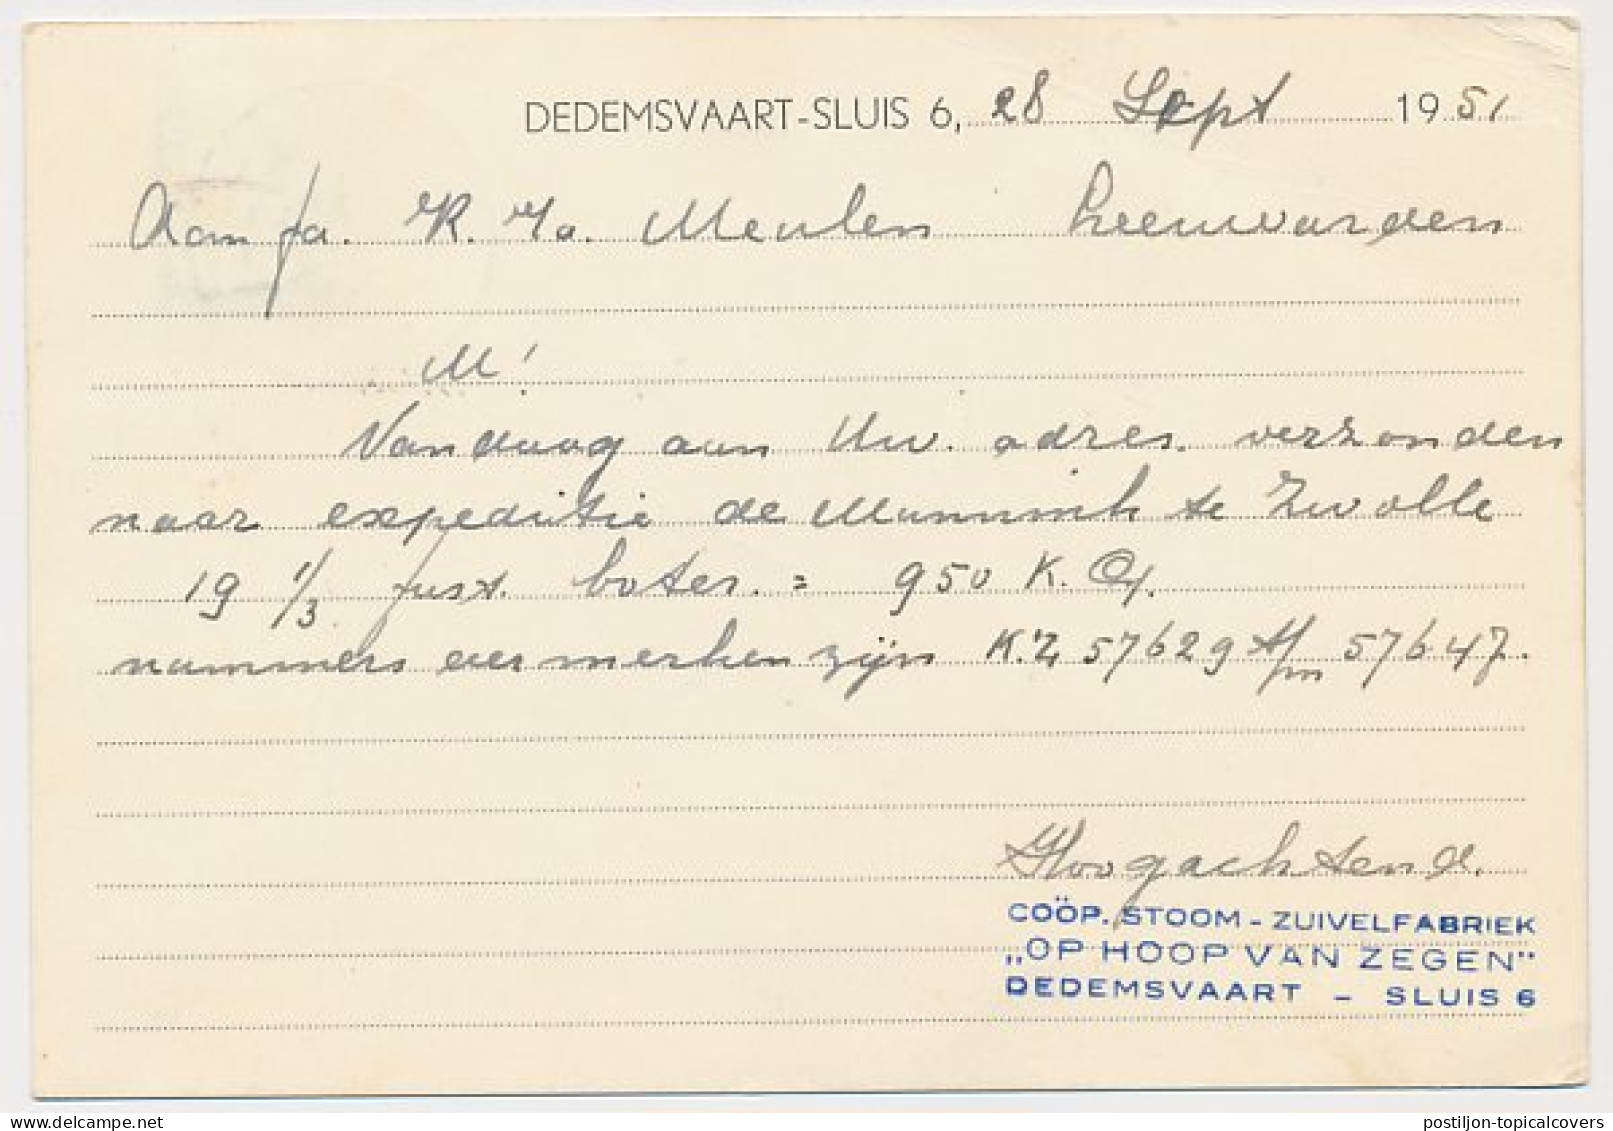 DEDEMSVAART-SLUIS 6, 28 Sept 1951
Aan fa. K. v/d. Meulen Leeuwarden
M!
Vandaag aan Uw. adres. verzonden
naar expeditie de Munnink te Zwolle
19 1/3 fust. boter. = 950 K.G.
nummers en merken zijn K.Z 57629 t/m 57647.
Hoogachtend.
COÖP. STOOM - ZUIVELFABRIEK
„OP HOOP VAN ZEGEN"
DEDEMSVAART - SLUIS 6
delcampe.net
postiljon-topicalcovers